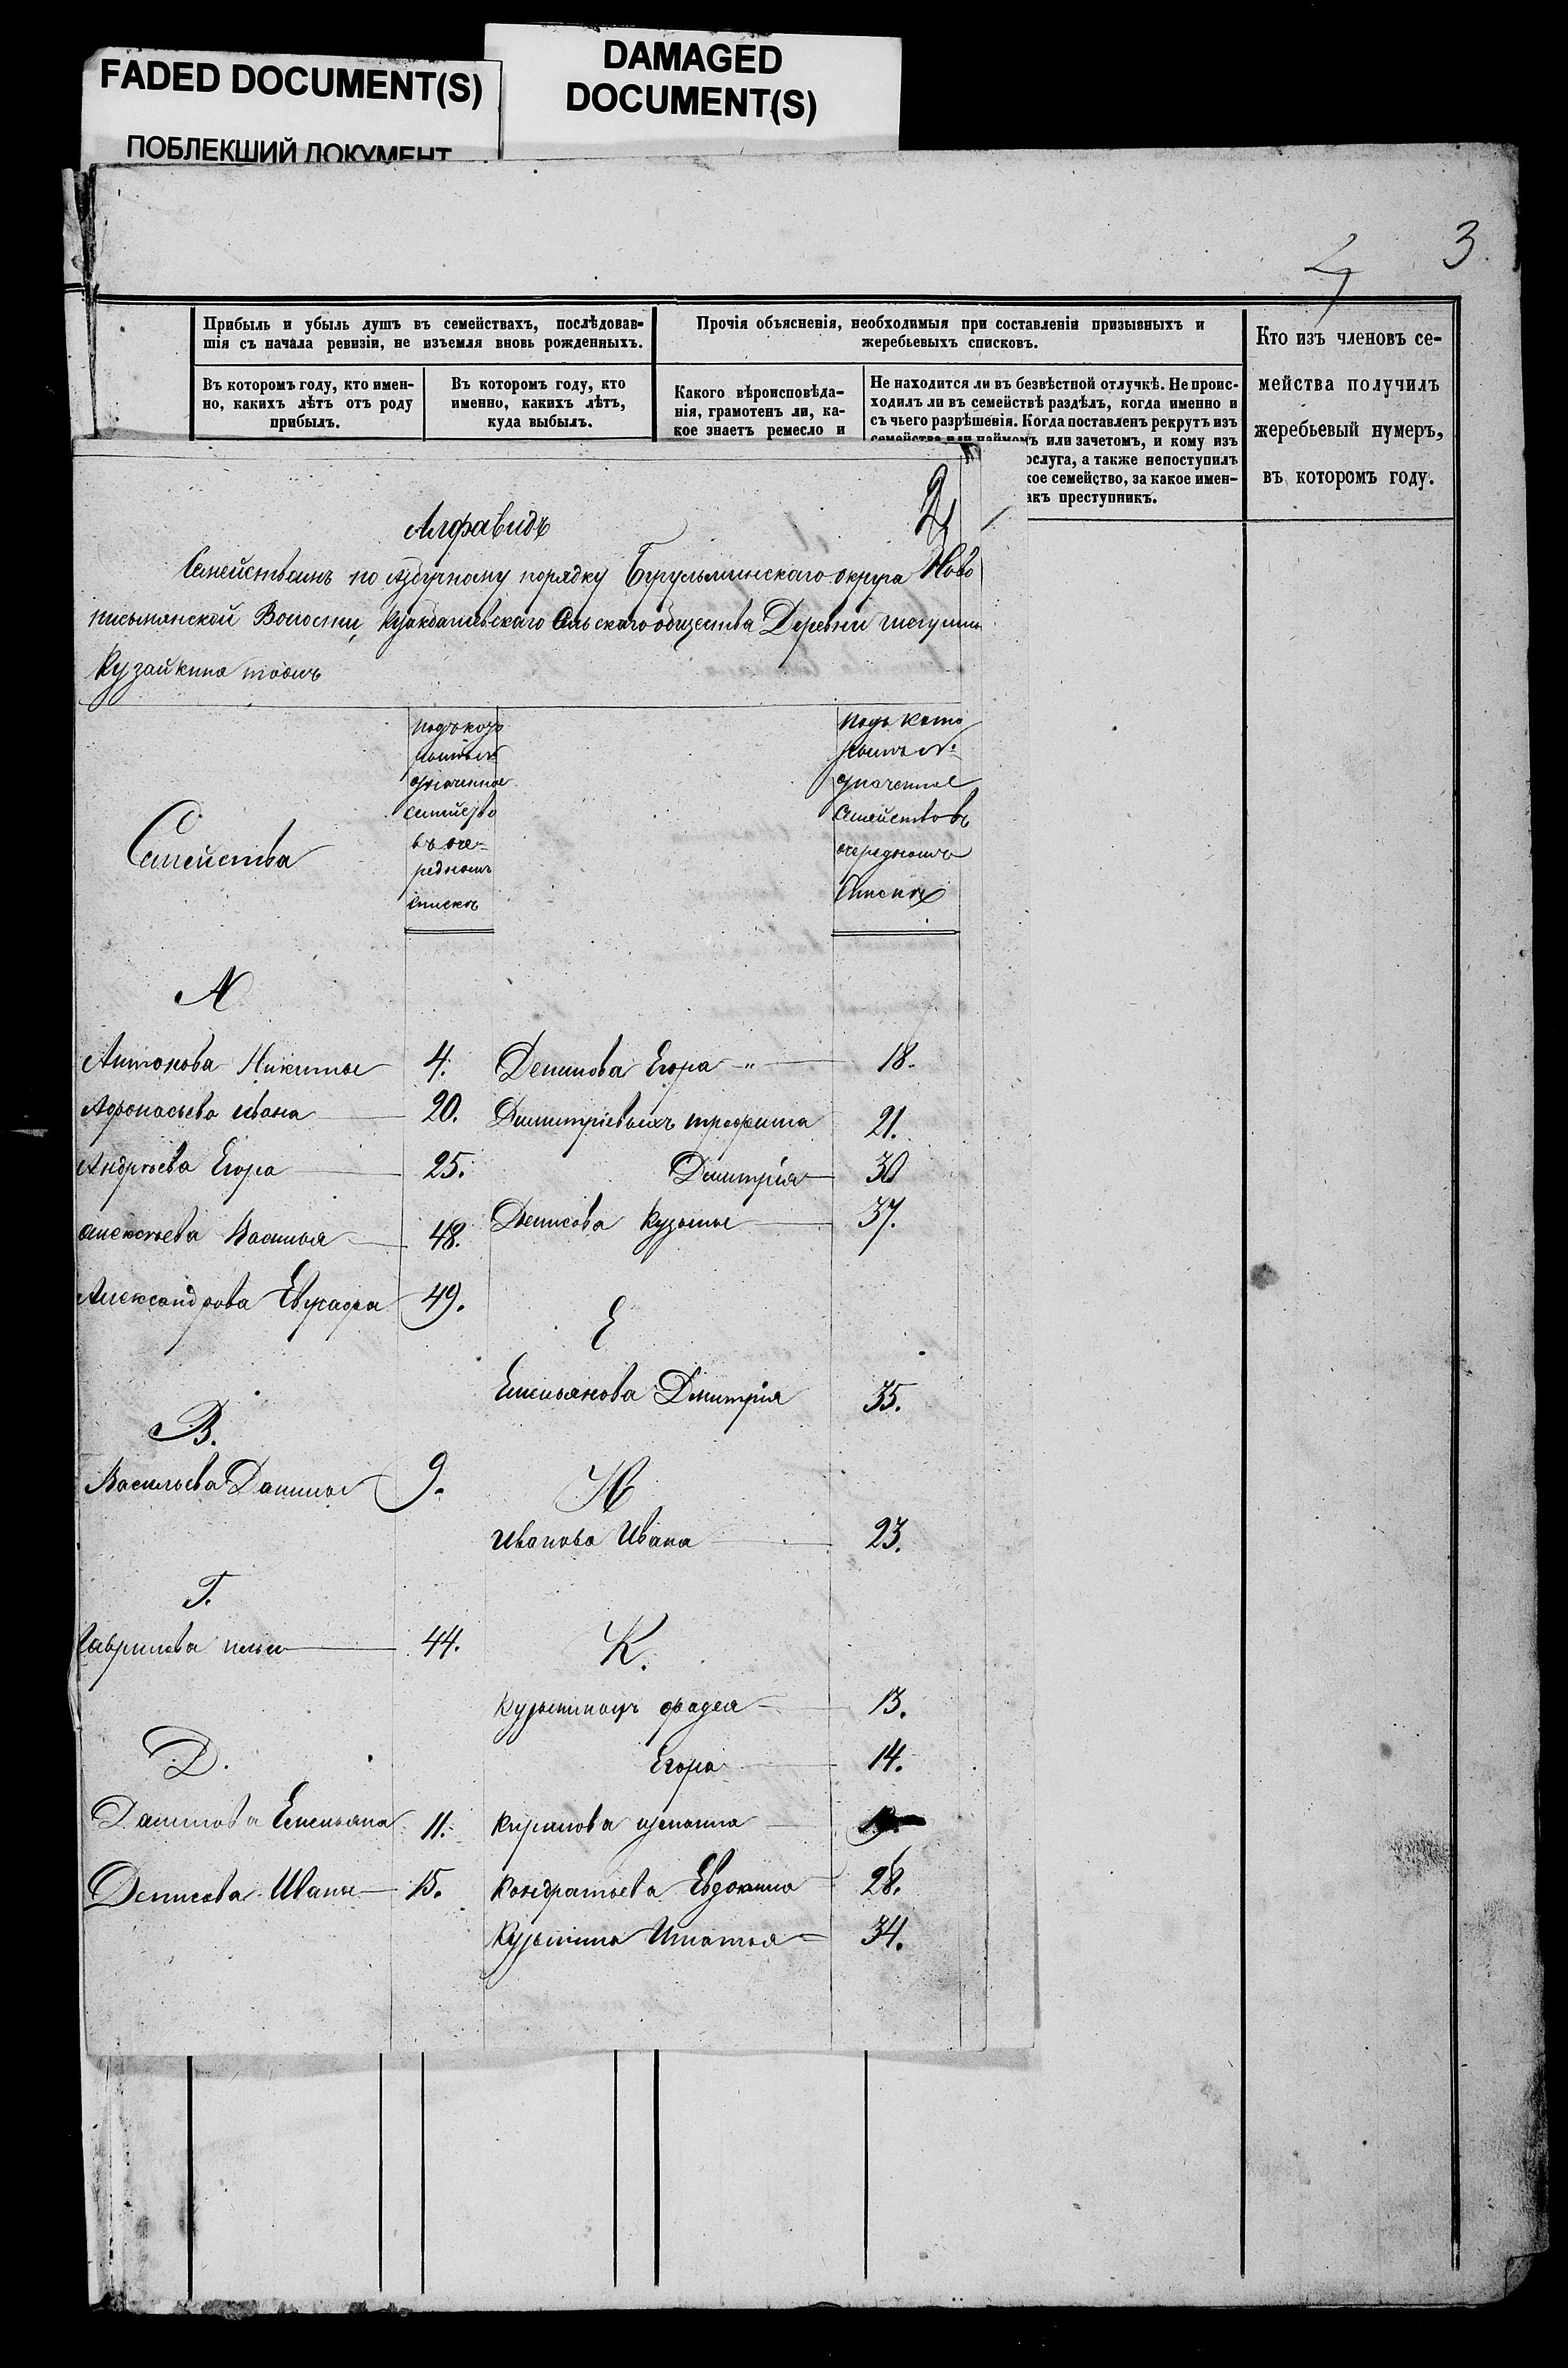 FADED DOCUMENT(S)
ПОБЛЕКШИЙ ДОКУМЕНТ
DAMAGED
DOCUMENT(S)
4 3.
Прибыль и убыль душъ въ семействахъ, послѣдовав-
шія съ начала ревизіи, не изъемля вновь рожденныхъ.
Въ которомъ году, кто имен-
но, какихъ лѣтъ отъ роду
прибылъ.
Въ которомъ году, кто
именно, какихъ лѣтъ,
куда выбылъ.
Прочія объясненія, необходимыя при составленіи призывныхъ и
жеребьевыхъ списковъ.
Какого вѣроисповѣда-
нія, грамотенъ ли, ка-
кое знаетъ ремесло и
Не находится ли въ безвѣстной отлучкѣ. Не проис-
ходилъ ли въ семействѣ раздѣлъ, когда именно и
съ чьего разрѣшенія. Когда поставленъ рекрутъ изъ
семейства или наймомъ или зачетомъ, и кому изъ
ослуга, а также непоступилъ
кое семейство, за какое имен-
акъ преступникъ.
Кто изъ членовъ се-
мейства получилъ
жеребьевый нумеръ,
въ которомъ году.
2
Алфавидъ
Семействамъ по азбучному порядку Бугульминскаго округа Ново
письмянской Волости, Сельскаго общества Деревни
Кузайкина тожъ
Семейства
подъ кото
рымъ №
значенное
семейство
въ оче-
редномъ
списке
подъ кото
рымъ №
значенное
Семейство въ
очередномъ
Списке
А
Антонова Никиты 4.
Афонасьева ивана 20.
Андреева Егора 25.
алексеева Василья 48.
Александрова Евграфа 49.
В.
Васильева Данилы 9.
Г.
Гаврилова ильи 44.
Д.
Данилова Емельяна 11.
Денисова Ивана 15.
Данилова Егора " 18.
Дмитріевыхъ трофима 21.
Дмитрія 30
Денисова Кузьмы 37.
Е
Емельянова Дмитрія 35.
И
Иванова Ивана 23.
К.
Кузьминыхъ фадея 13.
Егора 14.
Кирилова 19.
Кондратьева Евдокима 28.
Кузьмина Игнатья 34.